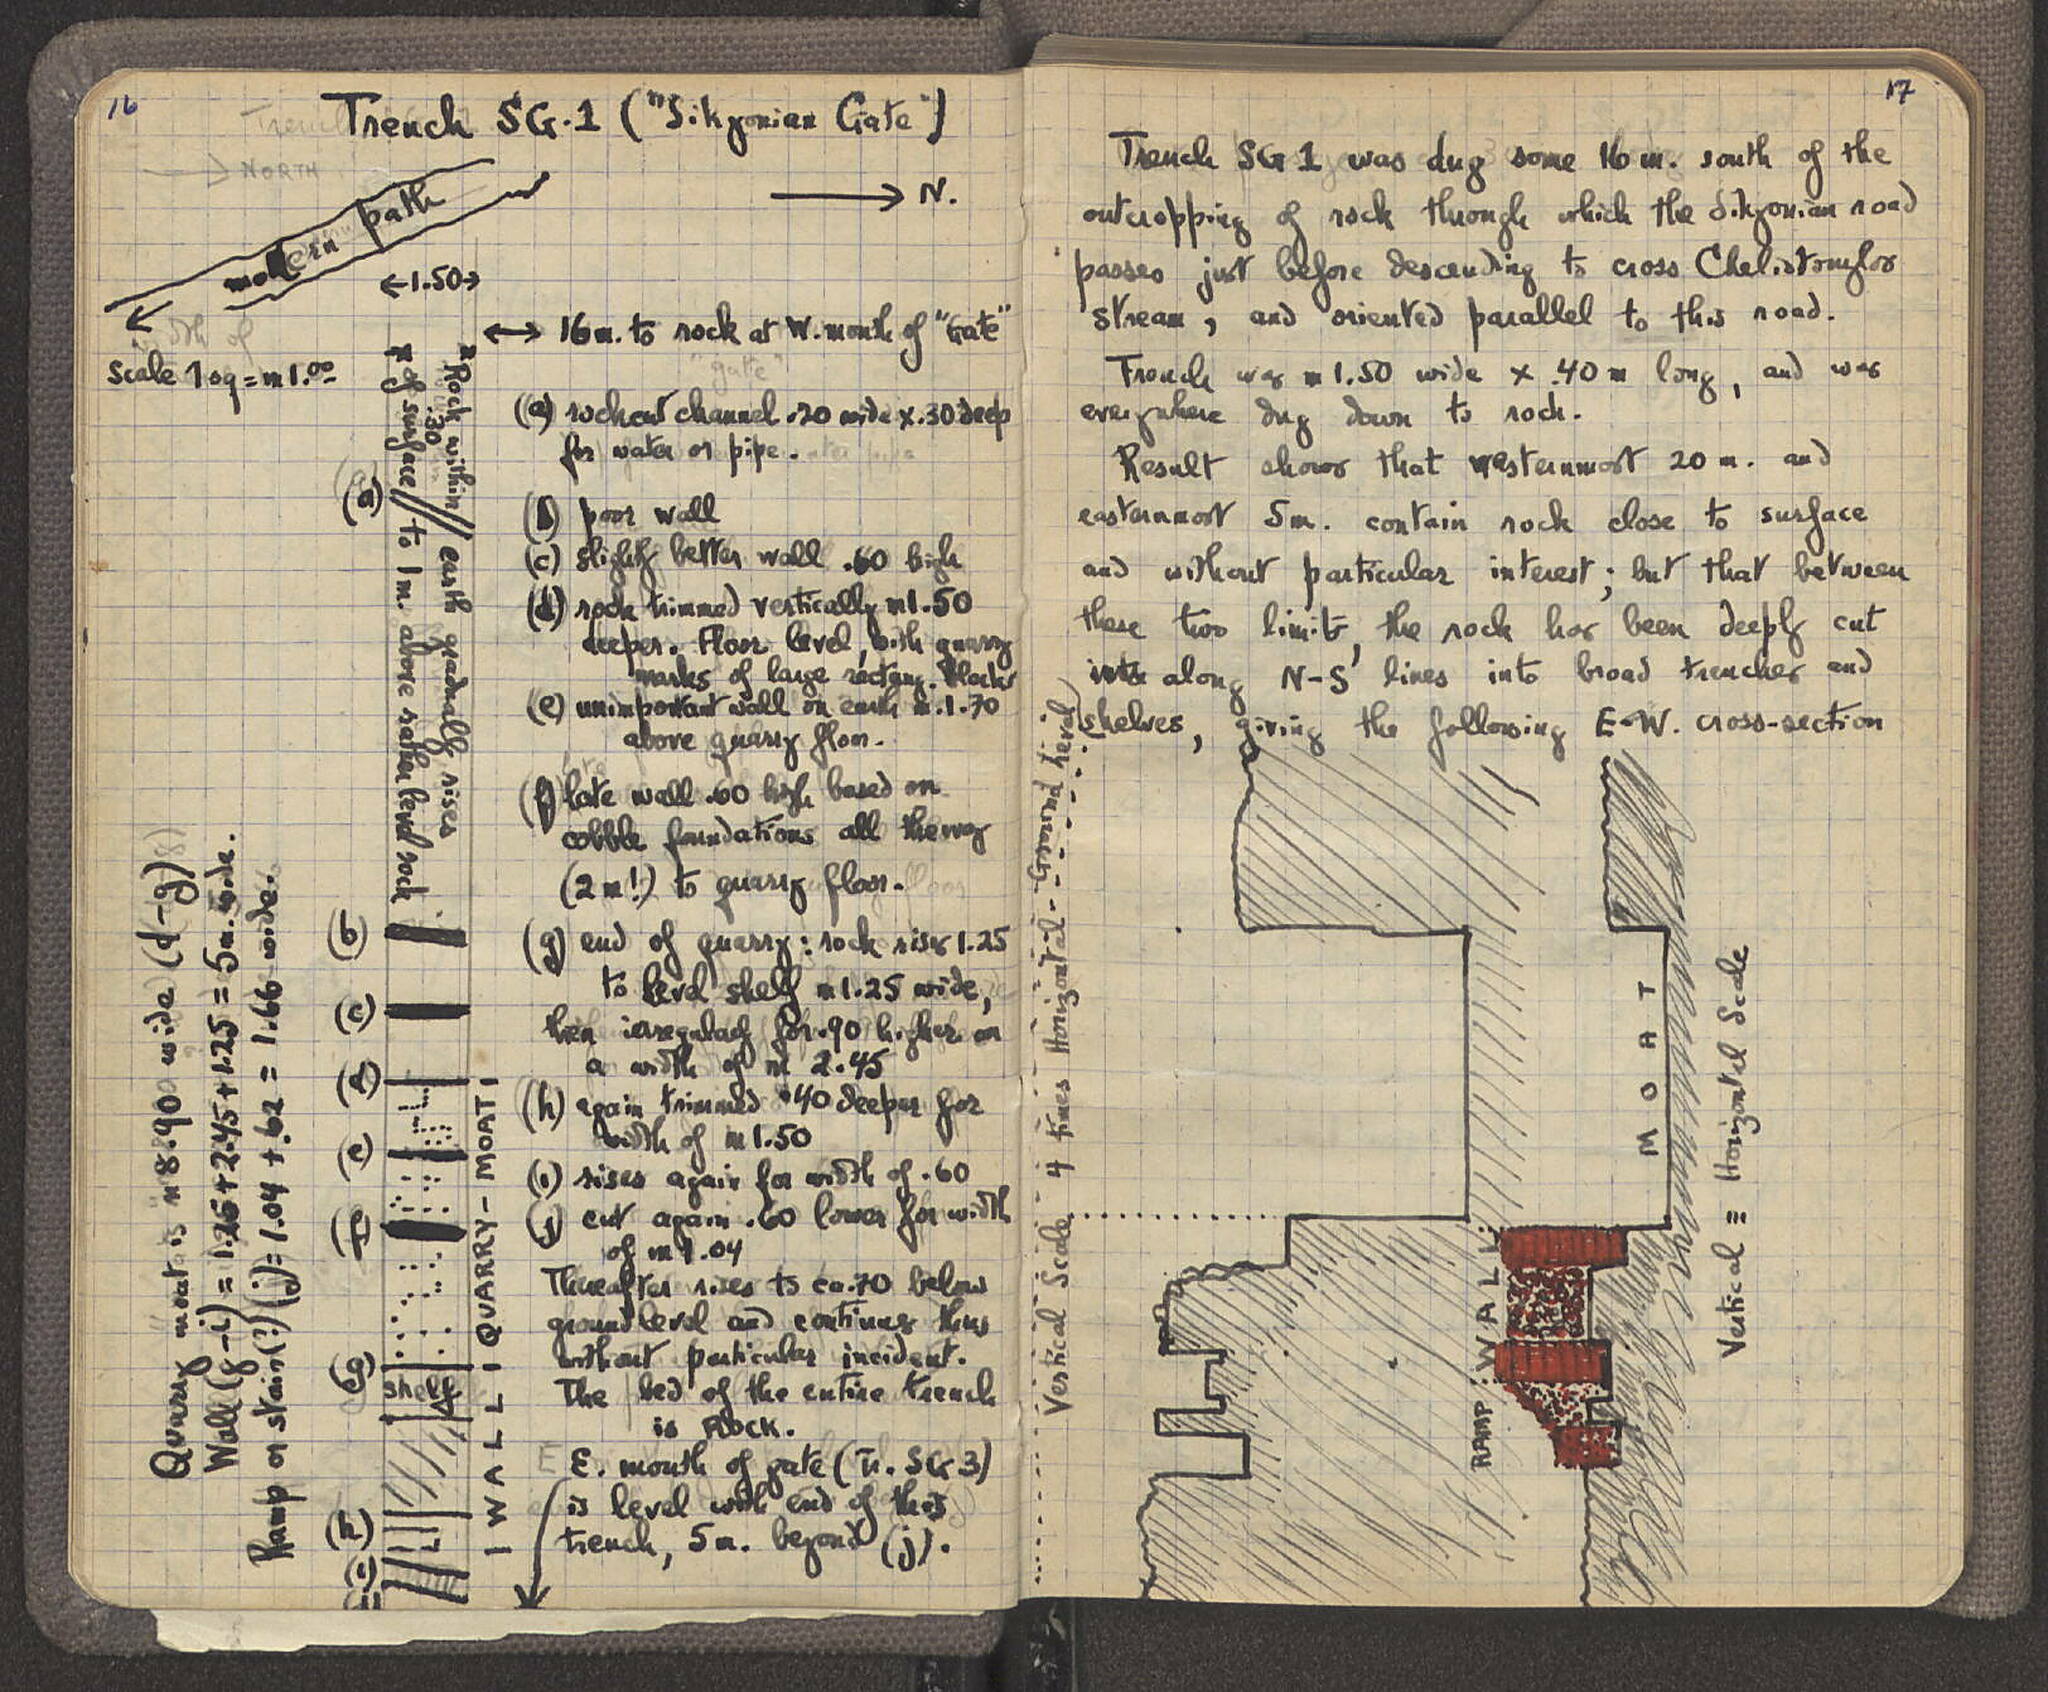 16
Trench SG.1 ("Sikyonian Gate")
NORTH
N.
modern path
←1.50→
Scale 1 sq = m 1.00
16 m. to rock at W. mouth of "Gate"
Rock within .30
of surface // earth gradually rises
to 1 m. above rather level rock
(a) rockcut channel .20 wide x .30 deep
for water or pipe.
(b) poor wall
(c) slightly better wall .60 high
(d) rock trimmed vertically m 1.50
deeper. Floor level, with quarry
marks of large rectang. blocks
(e) unimportant wall on earth m. 1.70
above quarry floor.
(f) late wall .60 high based on
cobble foundations all the way
(2 m!) to quarry floor.
(g) end of quarry: rock rises 1.25
to level shelf m 1.25 wide,
then irregularly for .90 higher on
a width of m 2.45
(h) again trimmed .40 deeper for
width of m 1.50
(i) rises again for width of .60
(j) cut again .60 lower for width
of m 1.04
Thereafter rises to ca .70 below
ground level and continues thus
without particular incident.
The bed of the entire trench
is ROCK.
E. mouth of gate (Tr. SG 3)
is level with end of this
trench, 5 m. beyond (j).
(a)
(b)
(c)
(d)
(e)
(f)
(g)
shelf
(h)
(i)
(j)
QUARRY-MOAT
WALL
Quarry moat is m 8.90 wide (d-g)
Wall (g-i) = 1.25 + 2.45 + 1.25 = 5 m. wide.
Ramp or stair(?) (j) = 1.04 + .62 = 1.66 wide.
17
Trench SG 1 was dug some 16 m. south of the
outcropping of rock through which the Sikyonian road
passes just before descending to cross Cheliotomylos
stream, and oriented parallel to this road.
Trench was m 1.50 wide x .40 m long, and was
everywhere dug down to rock.
Result shows that westernmost 20 m. and
easternmost 5 m. contain rock close to surface
and without particular interest; but that between
these two limits, the rock has been deeply cut
into along N-S lines into broad trenches and
shelves, giving the following E-W. cross-section
Ground level
Vertical Scale 4 times Horizontal
MOAT
WALL
RAMP
Vertical ≡ Horizontal Scale